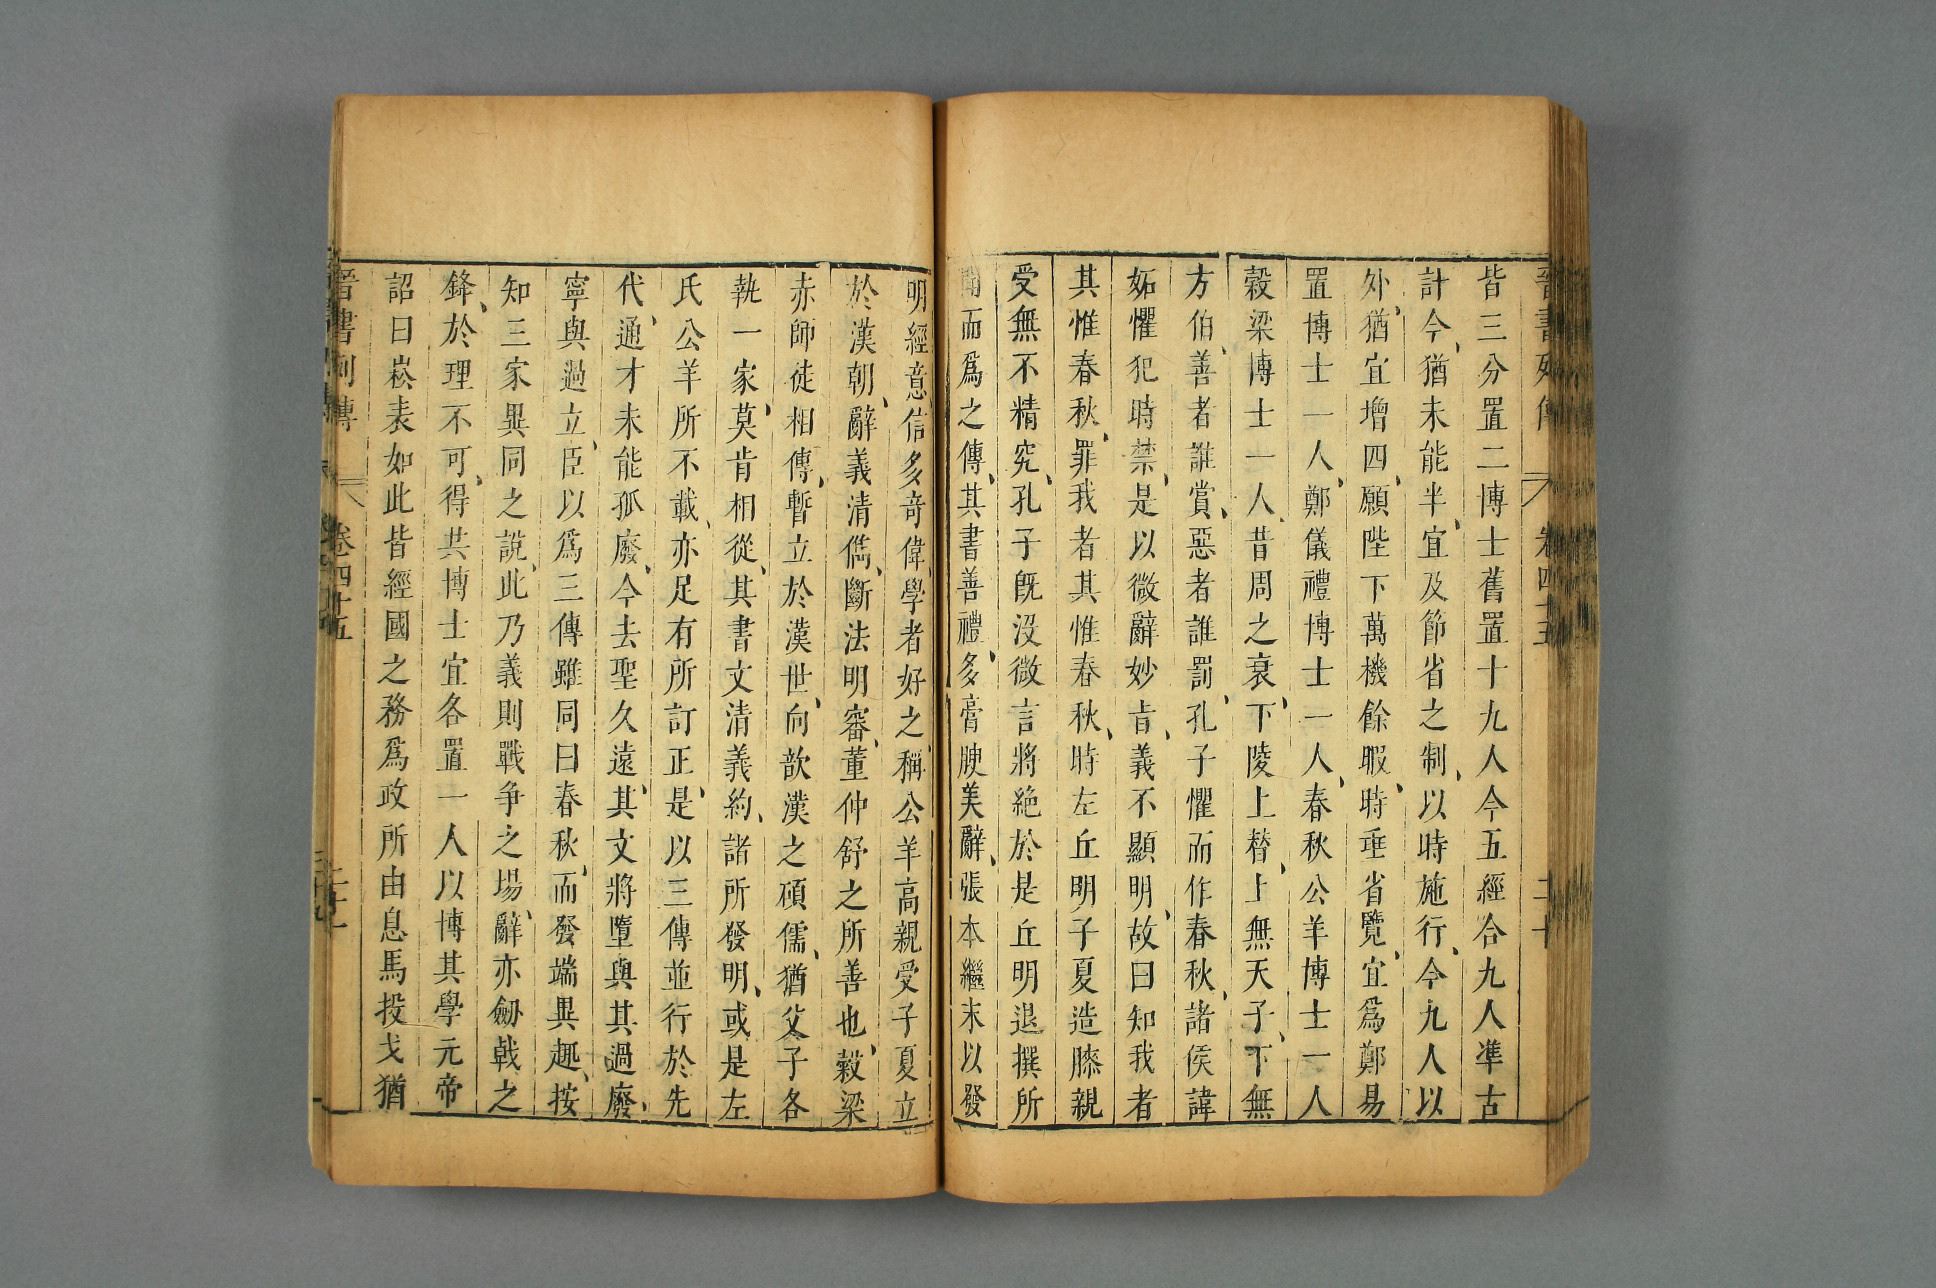 晉書列傳 卷四十五 二十
皆三分置二博士舊置十九人今五經合九人準古
計今猶未能半宜及節省之制以時施行今九人以
外猶宜增四願陛下萬機餘暇時垂省覽宜爲鄭易
置博士一人鄭儀禮博士一人春秋公羊博士一人
穀梁博士一人昔周之衰下陵上替上無天子下無
方伯善者誰賞惡者誰罰孔子懼而作春秋諸侯諱
妬懼犯時禁是以微辭妙旨義不顯明故曰知我者
其惟春秋罪我者其惟春秋時左丘明子夏造膝親
受無不精究孔子既没微言將絶於是丘明退撰所
聞而爲之傳其書善禮多膏腴美辭張本繼末以發
明經意信多奇偉學者好之稱公羊高親受子夏立
於漢朝辭義清儁斷法明審董仲舒之所善也穀梁
赤師徒相傳暫立於漢世向歆漢之碩儒猶父子各
執一家莫肯相從其書文清義約諸所發明或是左
氏公羊所不載亦足有所訂正是以三傳並行於先
代通才未能孤廢今去聖久遠其文將墮與其過廢
寧與過立臣以爲三傳雖同曰春秋而發端異趣按
知三家異同之說此乃義則戰争之場辭亦劒戟之
鋒於理不可得共博士宜各置一人以博其學元帝
詔曰崧表如此皆經國之務爲政所由息馬投戈猶
晉書列傳 卷四十五